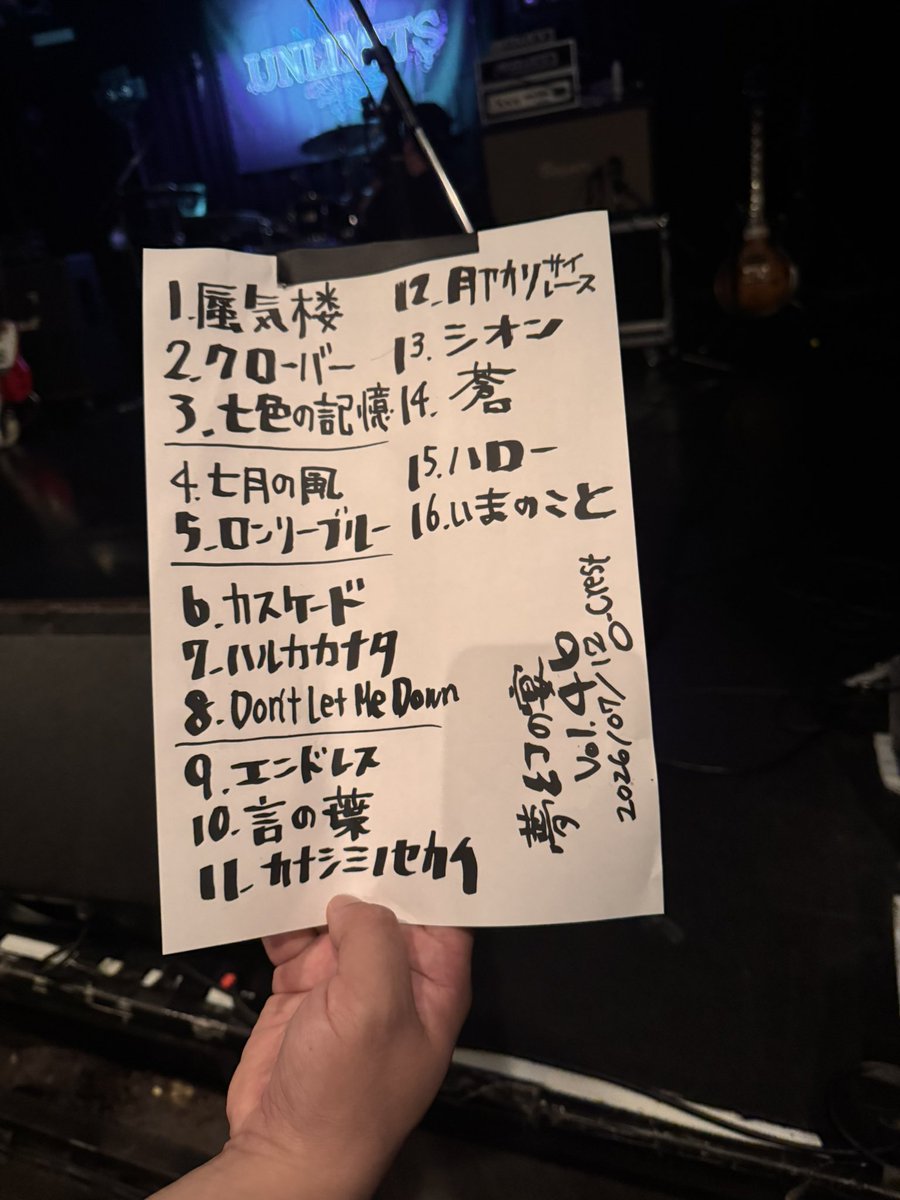 UNLIMITS
1.蜃気楼
2.クローバー
3.七色の記憶
4.七月の風
5.ロンリーブルー
6.カスケード
7.ハルカカナタ
8.Don't Let Me Down
9.エンドレス
10.言の葉
11.カナシミノセカイ
12.月アカリサイレース
13.シオン
14.蒼
15.ハロー
16.いまのこと
夢幻の宴
Vol.46
2026/07/12 O-Crest